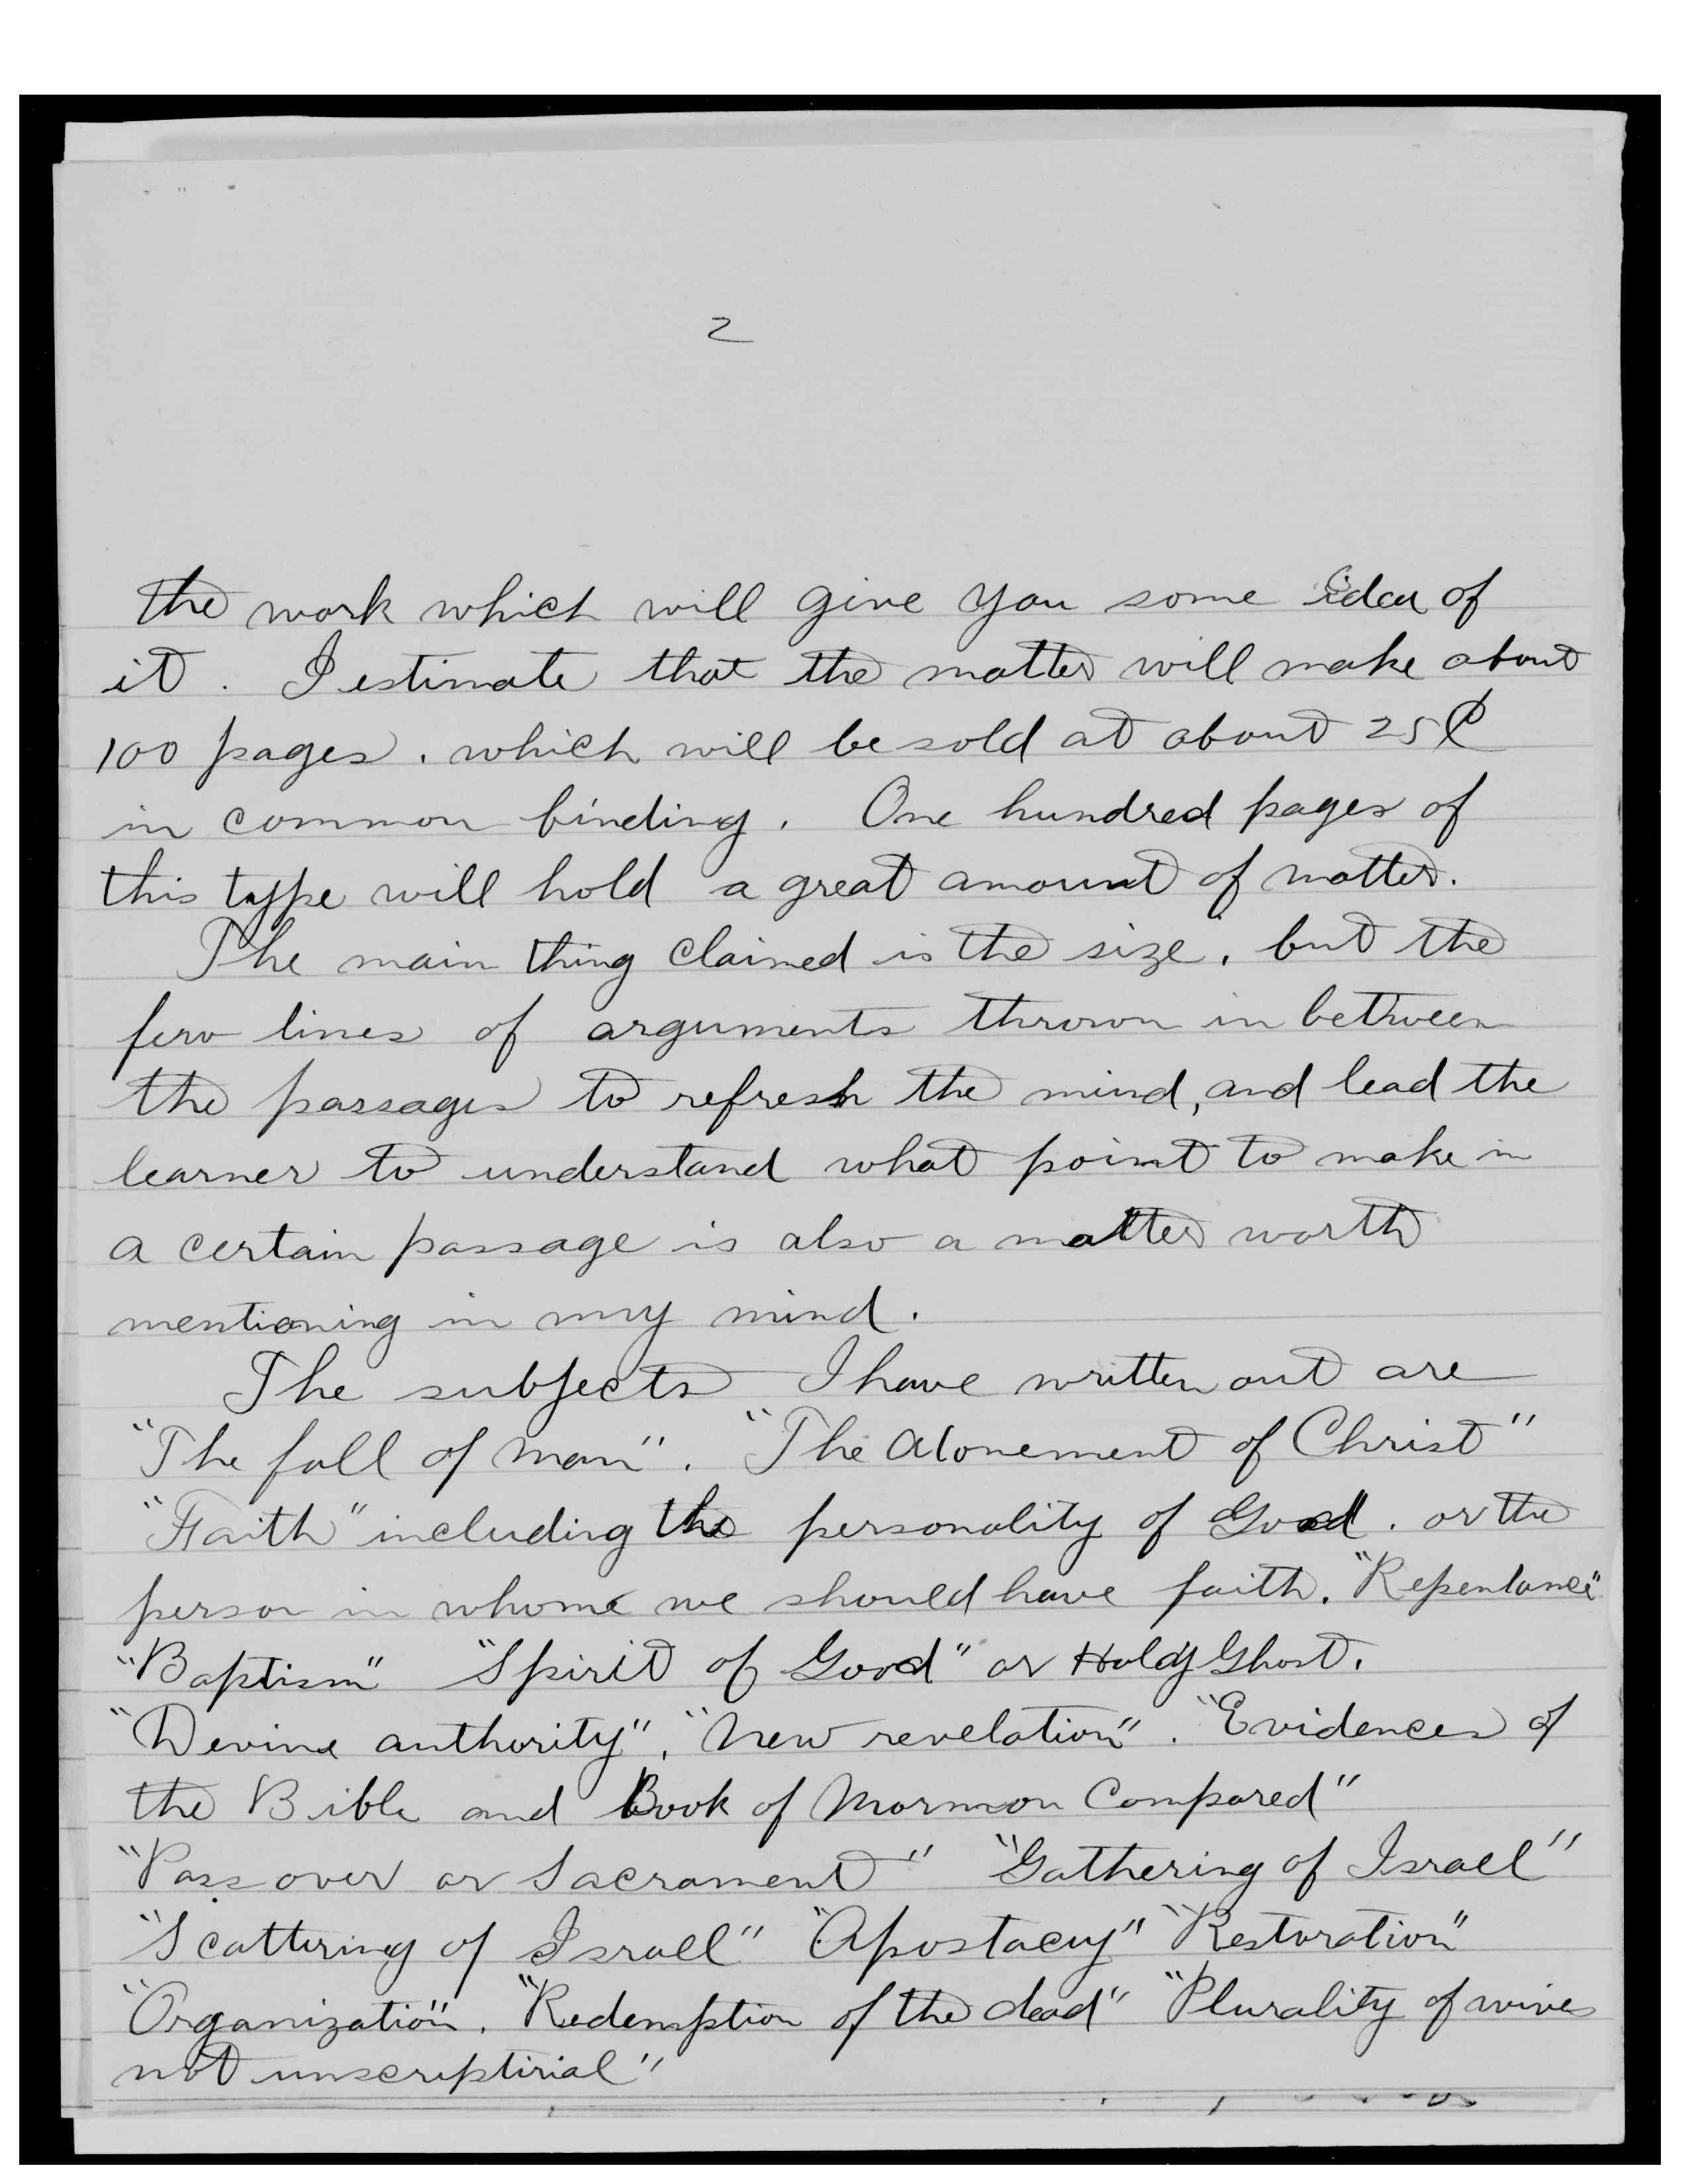 2
the work which will give you some idea of
it. I estimate that the matter will make about
100 pages. which will be sold at about 25¢
in common binding. One hundred pages of
this type will hold a great amount of matter.
The main thing claimed is the size, but the
few lines of arguments thrown in between
the passages to refresh the mind, and lead the
learner to understand what point to make in
a certain passage is also a matter worth
mentioning in my mind.
The subjects I have written out are
"The fall of man". "The Atonement of Christ"
"Faith" including the personality of God. or the
person in whome we should have faith. "Repentance"
"Baptism" "Spirit of God" or Holy Ghost.
"Devine authority". "New revelation". "Evidences of
the Bible and Book of Mormon Compared"
"Passover or Sacrament" "Gathering of Israel"
"Scattering of Israel" "Apostacy" "Restoration"
"Organization". "Redemption of the dead" "Plurality of wives
not unscriptirial"